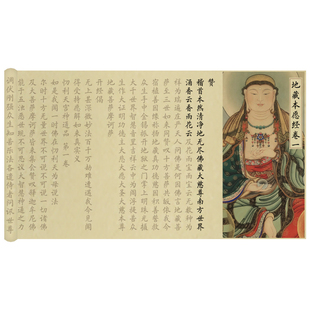 地藏本愿经卷一
赞
稽首本然清净地无尽佛藏大慈尊南方世界
涌香云香雨花云
及花雨宝雨宝云无数种为
祥为瑞遍庄严天人问佛是何因佛言地藏菩
萨至三世如来同赞叹十方菩萨共皈依我今
宿植善因缘称扬地藏真功德慈因积善誓救
众生手中金锡振开地狱之门掌上明珠光摄
大千世界智慧音里吉祥云中为阎浮提苦众
生作大证明功德主大悲大愿大圣大慈本尊
地藏菩萨摩诃萨
开经偈
无上甚深微妙法百千万劫难遭遇我今见闻
得受持愿解如来真实义
忉利天宫神通品 第一卷
如是我闻一时佛在忉利天为母说法
尔时十方无量世界不可说不可说一切诸佛
及大菩萨摩诃萨皆来集会赞叹释迦牟尼佛
能于五浊恶世现不可思议大智慧神通之力
调伏刚强众生知苦乐法各遣侍者问讯世尊